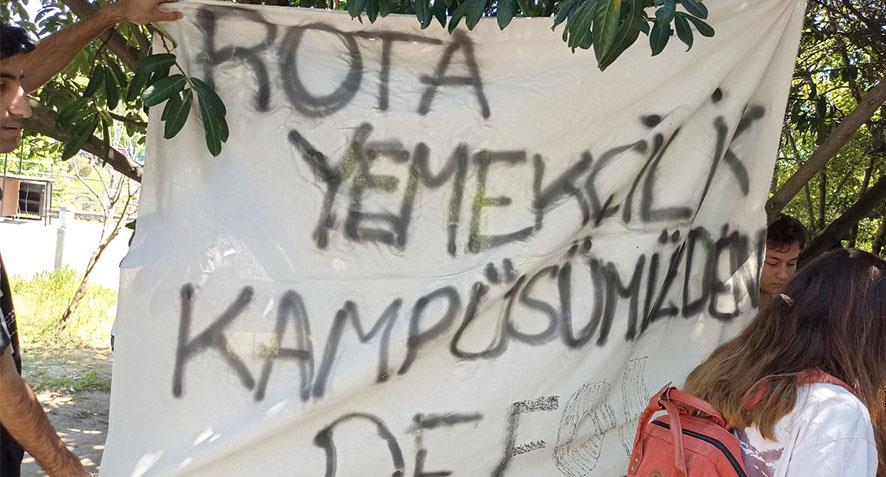 ROTA
YEMEKÇİLİK
KAMPÜSÜMÜZDEN
DEFOL